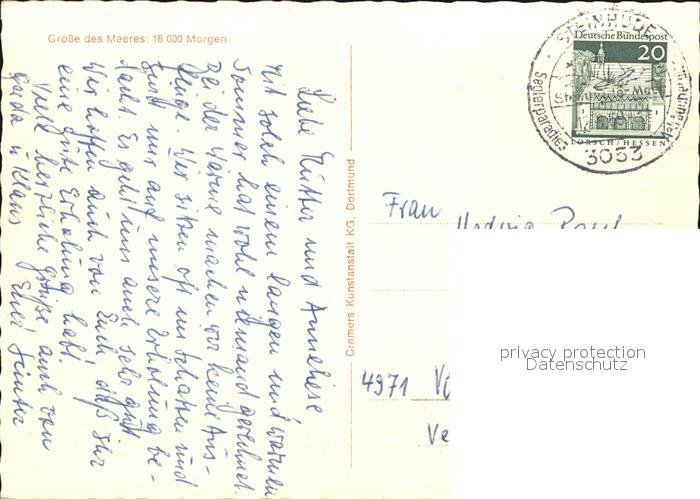 Größe des Meeres: 18 000 Morgen
Liebe Mutter und Anneliese
Mit solch einem langen und warmen
Sommer hat wohl niemand gerechnet.
Bei der Wärme machen wir keine Aus-
flüge. Wir sitzen oft im Schatten und
sind nur auf unsere Erholung be-
dacht. Es geht uns auch sehr gut
Wir hoffen auch von Euch, daß Ihr
eine gute Erholung habt.
Viele herzliche Grüße auch von
Gerda u. Klaus Euer Günter
Cramers Kunstanstalt KG, Dortmund
STEINHUDE
Seglerparadies
3053
Deutsche Bundespost
20
LORSCH/HESSEN
Frau
Hedwig
4971
privacy protection
Datenschutz